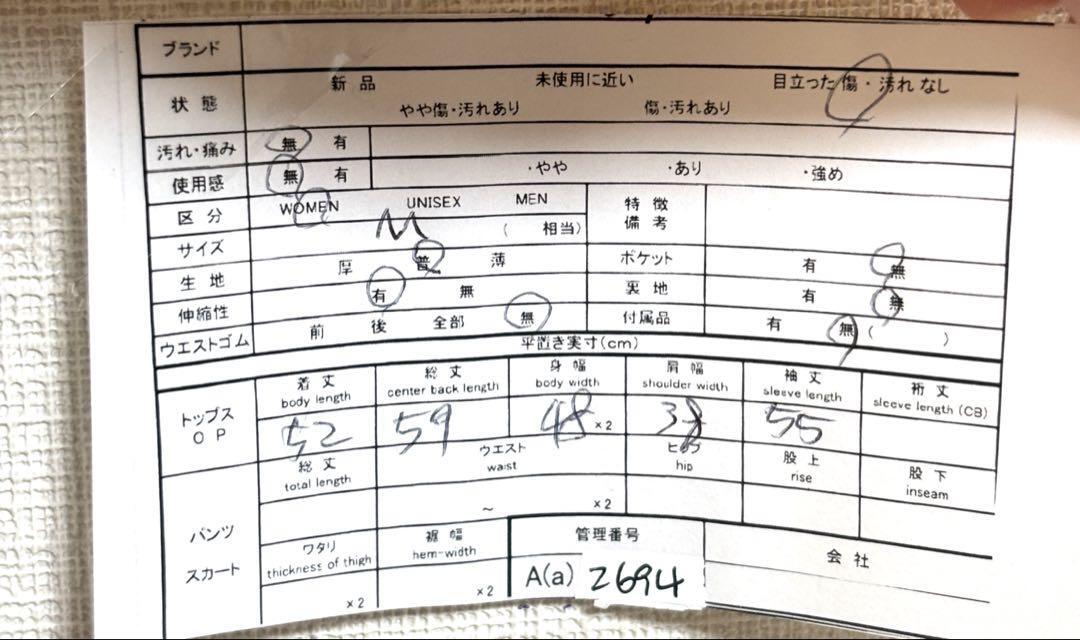 ブランド
状態 新品 未使用に近い 目立った傷・汚れなし
やや傷・汚れあり 傷・汚れあり
汚れ・痛み 無 有
使用感 無 有 ・やや ・あり ・強め
区分 WOMEN UNISEX MEN 特徴備考
サイズ M ( 相当)
生地 厚 普 薄 ポケット 有 無
伸縮性 有 無 裏地 有 無
ウエストゴム 前 後 全部 無 付属品 有 無 ( )
平置き実寸(cm)
トップス OP
着丈 総丈 身幅 肩幅 袖丈 裄丈
body length center back length body width shoulder width sleeve length sleeve length (CB)
52 59 48 ×2 38 55
パンツ スカート
総丈 ウエスト ヒップ 股上 股下
total length waist hip rise inseam
~ ×2
ワタリ 裾幅 管理番号 会社
thickness of thigh hem-width
×2 ×2 A(a) 2694